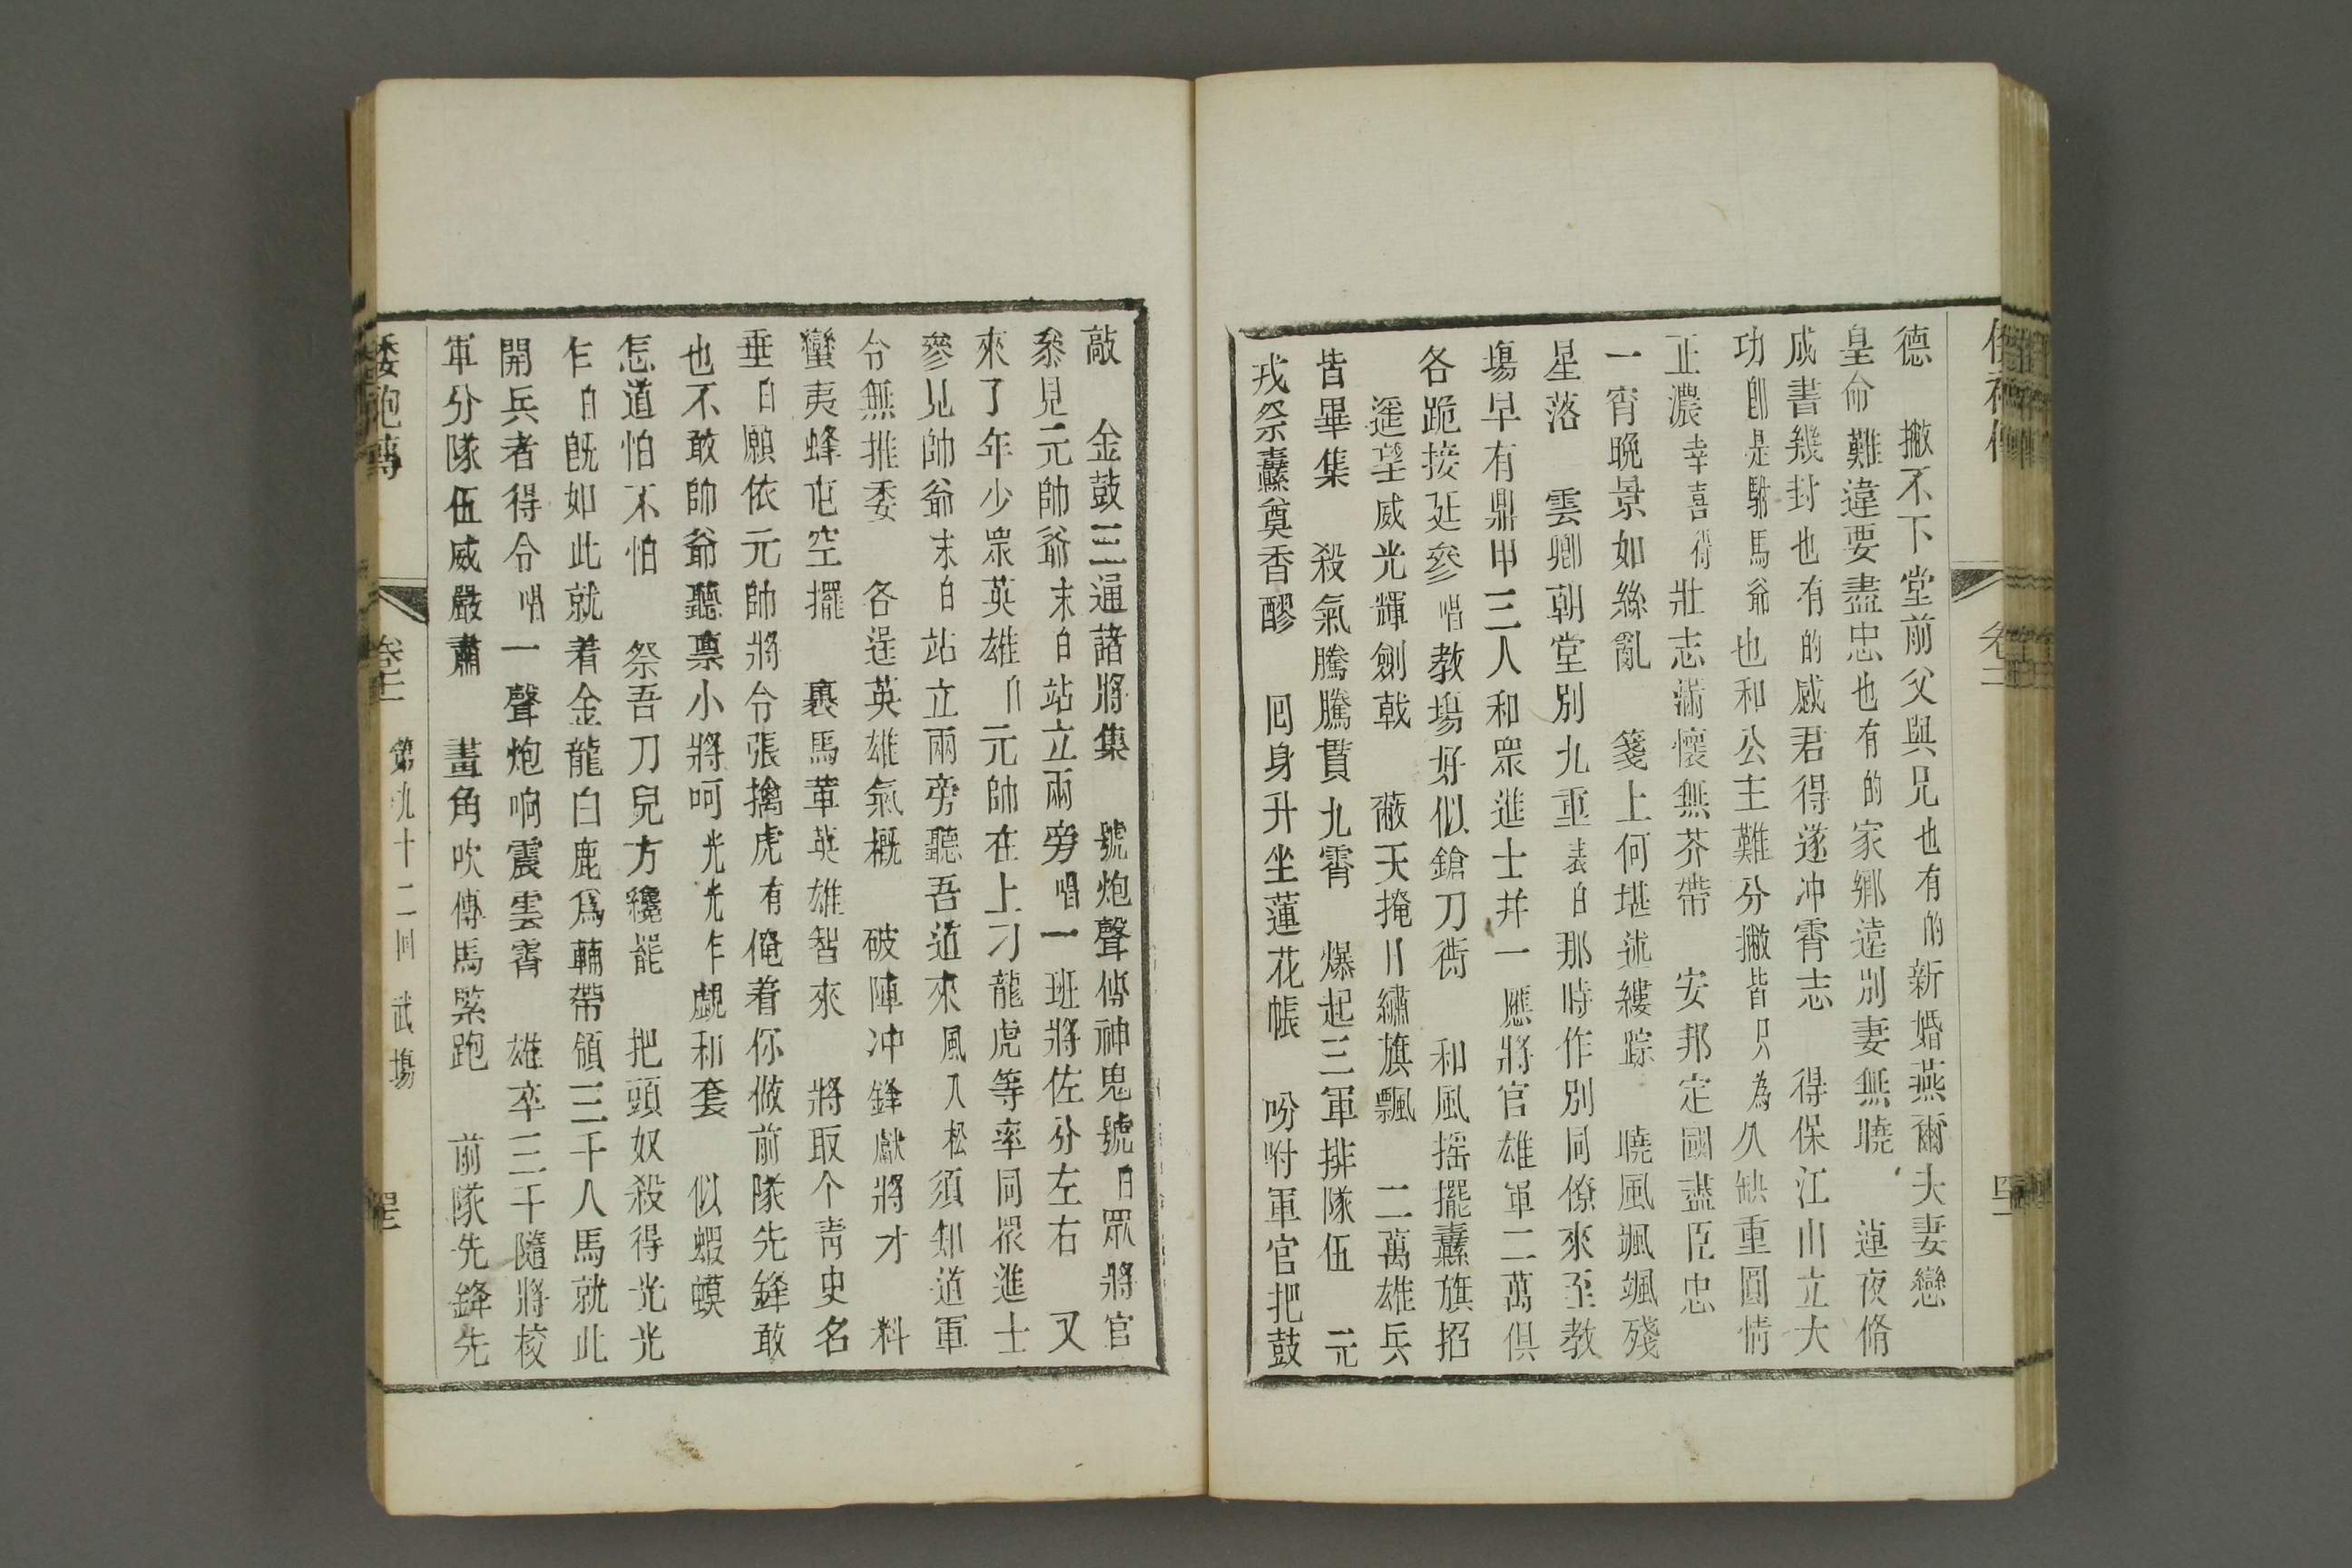 德 撇不下堂前父與兄也有的新婚燕爾夫妻戀
皇命難違要盡忠也有的家鄉遠別妻無曉 蓮夜脩
成書幾封也有的感君得遂冲霄志 得保江山立大
功卽是駙馬爺也和公主難分撇皆只為久缺重圓情
正濃幸喜得壯志滿懷無芥帶 安邦定國盡臣忠
一宵晚景如絲亂 箋上何堪述縷踪 曉風颯颯殘
星落 雲卿朝堂別九重表白那時作別同僚來至教
塲早有鼎甲三人和眾進士并一應將官雄軍二萬俱
各跪接迋參唱教塲好似鎗刀衖 和風摇擺纛旗招
遥望威光輝劍戟 蔽天掩日繡旗飄 二萬雄兵
皆畢集 殺氣騰騰貫九霄 爆起三軍排隊伍 元
戎祭纛奠香醪 囘身升坐蓮花帳 吩咐軍官把鼓
敲 金鼓三通諸將集 號炮聲傳神鬼號白眾將官
叅見元帥爺末白站立兩旁唱一班將佐分左右 又
來了年少眾英雄白元帥在上刁龍虎等率同眾進士
參見帥爺末白站立兩旁聽吾道來風入松須知道軍
令無推委 各逞英雄氣概 破陣冲鋒獻將才 料
蠻夷蜂屯空擺 裹馬革英雄智來 將取个靑史名
垂白願依元帥將令張擒虎有俺着你做前隊先鋒敢
也不敢帥爺聽禀小將呵光光乍覷和套 似蝦蟆
怎道怕不怕 祭吾刀兒方纔罷 把頭奴殺得光光
乍白旣如此就着金龍白鹿爲輔帶領三千人馬就此
開兵者得令唱一聲炮响震雲霄 雄卒三千隨將校
軍分隊伍威嚴肅 畫角吹傳馬緊跑 前隊先鋒先
倭袍傳 卷十二 第九十二回 武塲